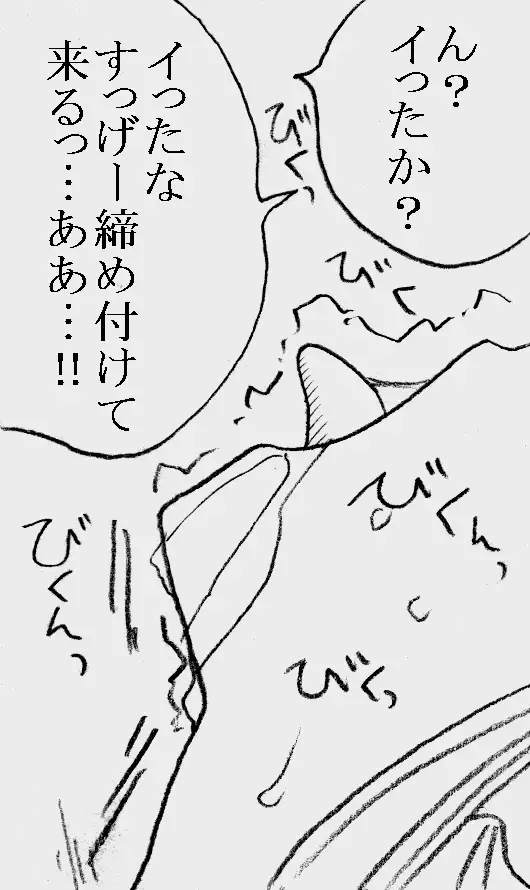 ん?
イったか?
イったな
すっげー締め付けて
来るっ…ああ…!!
びくっ
びく
びくんっ
びくんっ
びくっ